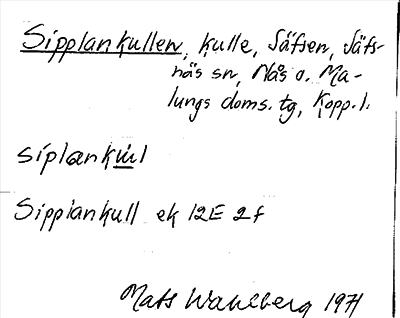 Sipplankullen, kulle, Säfsen, Säfs-
näs sn, Nås o. Ma-
lungs doms. tg, Kopp. l.
siplankul
Sipplankull ek 12E 2f
Mats Wahlberg 1971